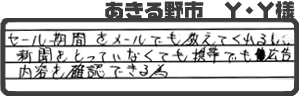 あきる野市　Y・Y様
セール期間をメールでも教えてくれるし、
新聞をとっていなくても携帯でも広告
内容を確認できる為